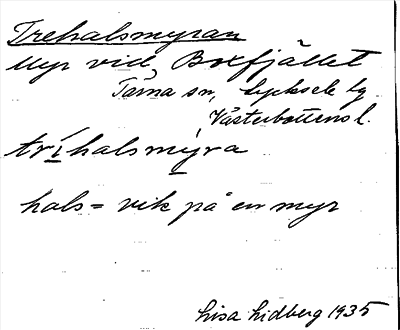 Trehalsmyran
Myr vid Boxfjället
Tärna sn, Lycksele lg
Västerbottens l.
tríhalsmýra
hals = vik på en myr
Lisa Lidberg 1935